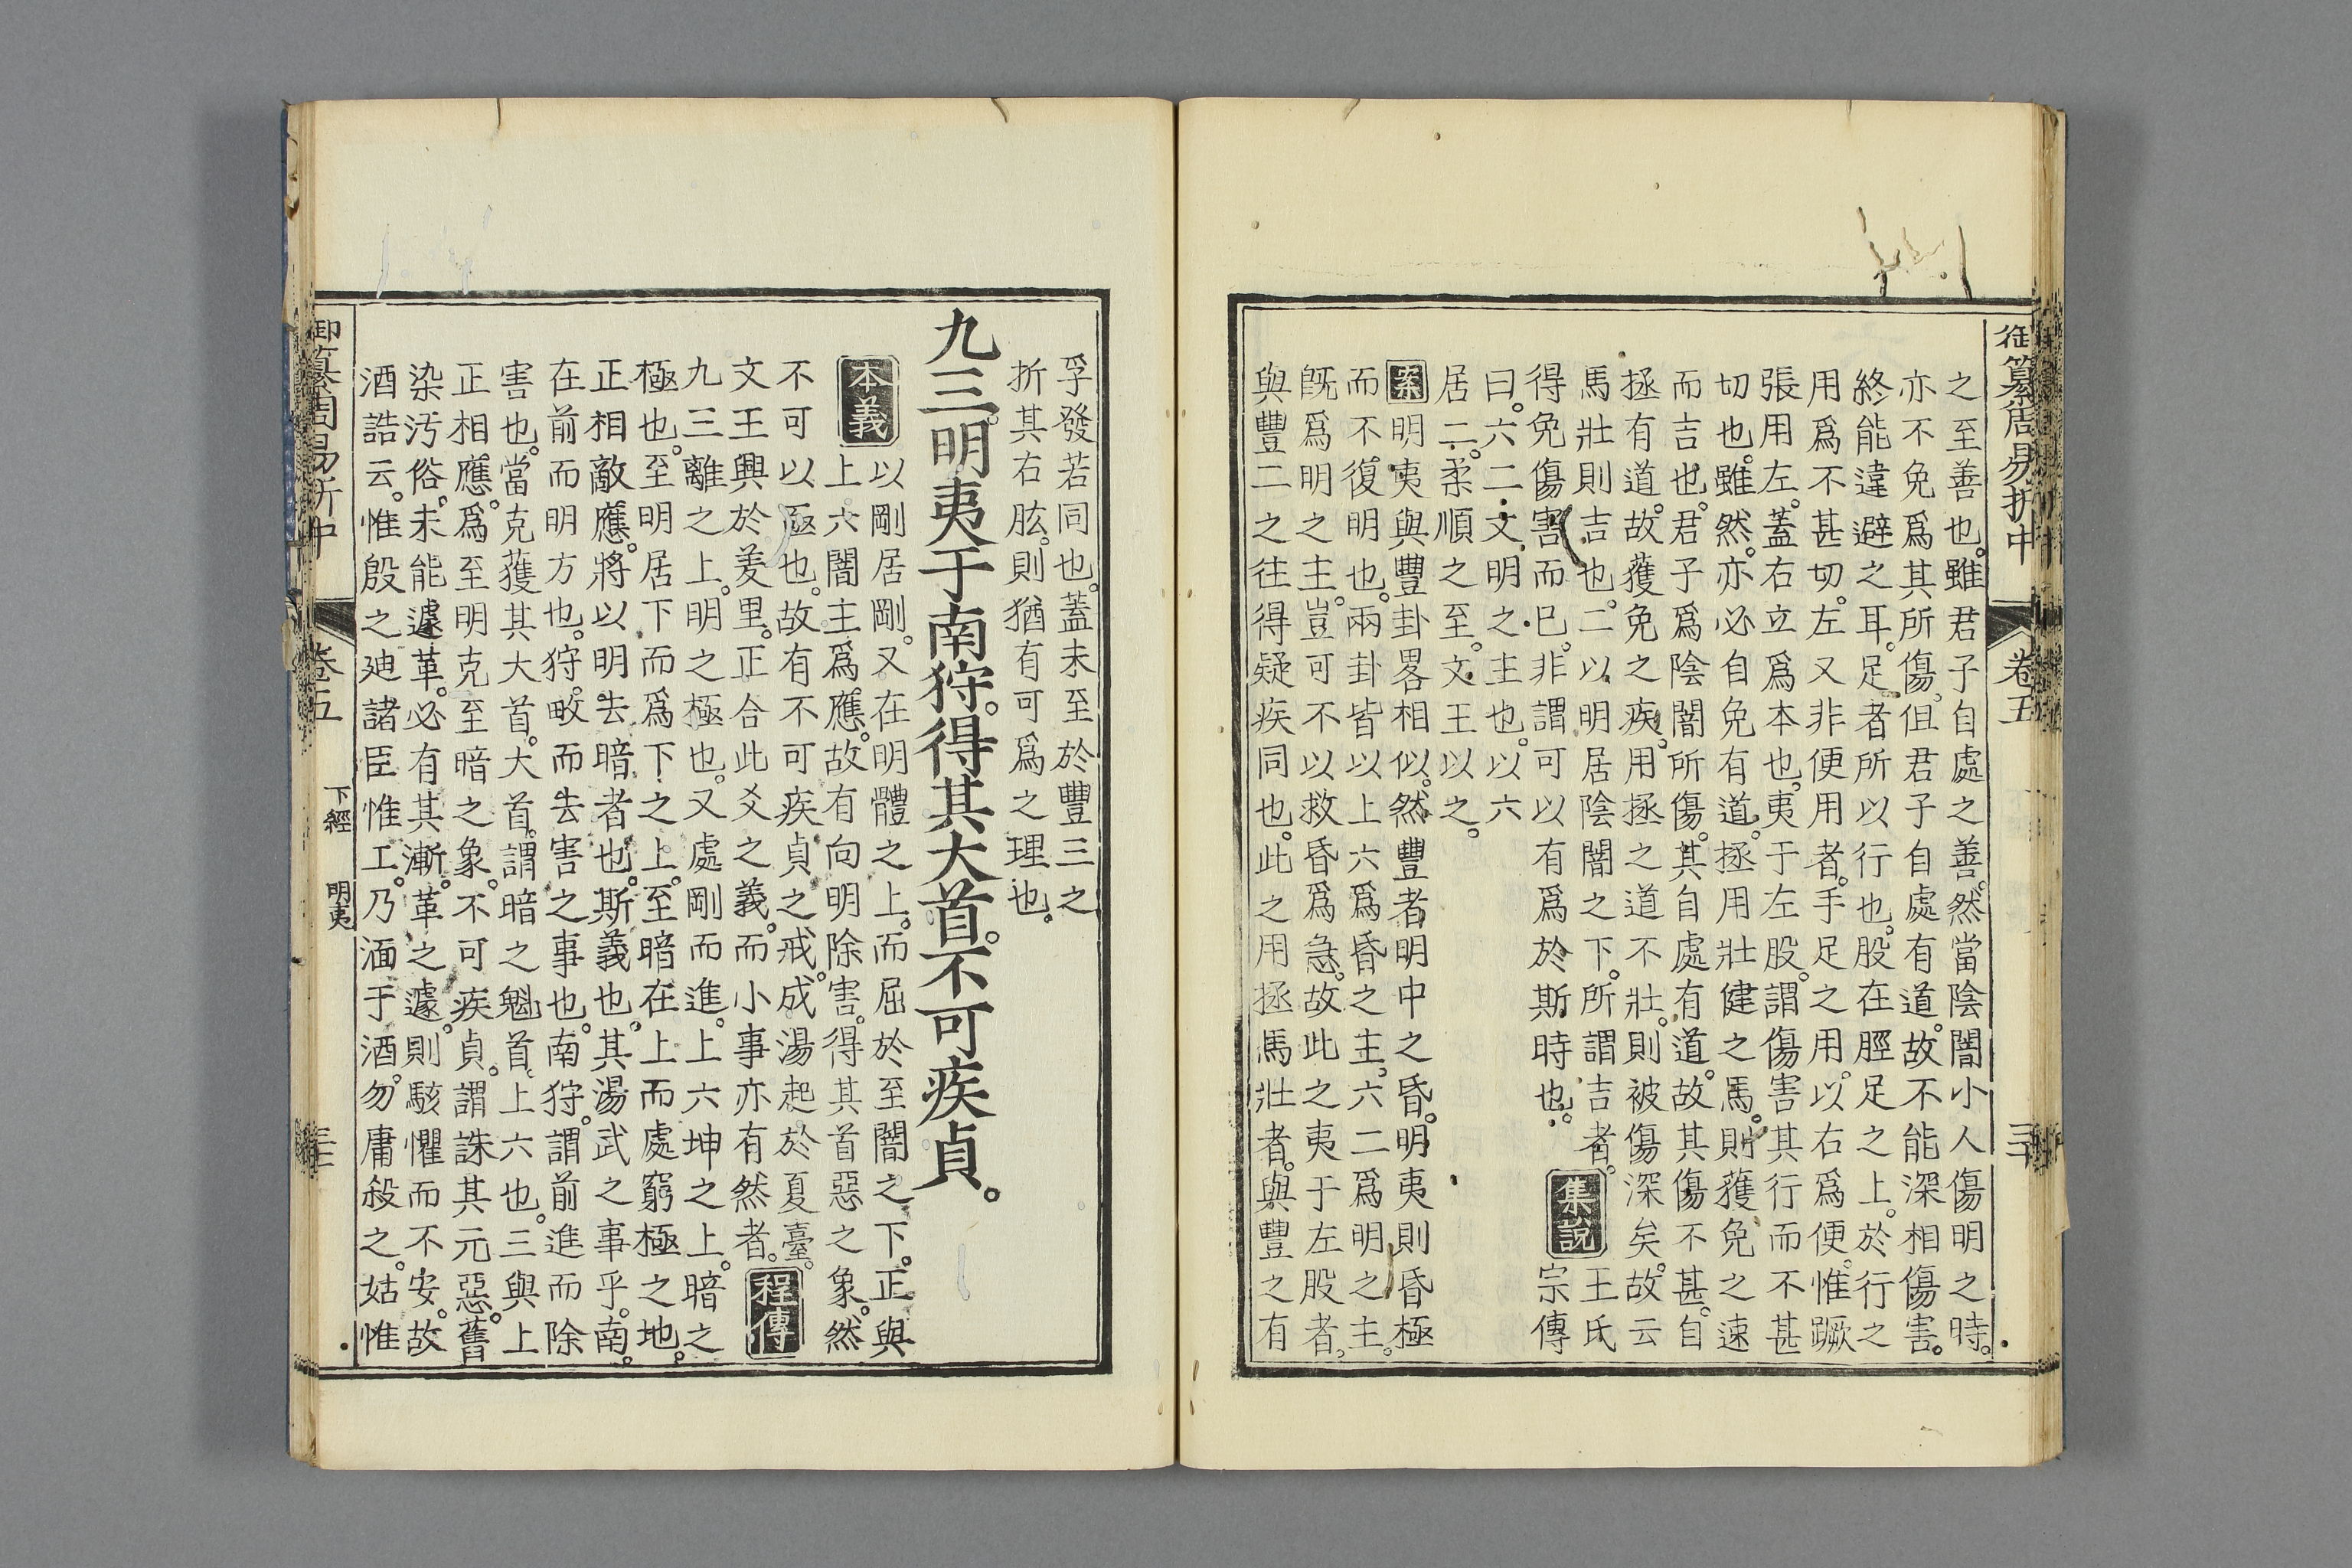 御纂周易折中 卷五 三十
之至善也。雖君子自處之善。然當陰闇小人傷明之時。
亦不免爲其所傷。但君子自處有道。故不能深相傷害。
終能違避之耳。足者所以行也。股在脛足之上。於行之
用爲不甚切。左又非便用者。手足之用。以右爲便。惟蹶
張用左。蓋右立爲本也。夷于左股。謂傷害其行而不甚
切也。雖然。亦必自免有道。拯用壯健之馬。則獲免之速
而吉也。君子爲陰闇所傷。其自處有道。故其傷不甚。自
拯有道。故獲免之疾。用拯之道不壯。則被傷深矣。故云
馬壯則吉也。二以明居陰闇之下。所謂吉者。
得免傷害而已。非謂可以有爲於斯時也。
集說
王氏
宗傳
曰。六二文明之主也。以六
居二。柔順之至。文王以之。
案明夷與豐卦畧相似。然豐者明中之昏。明夷則昏極
而不復明也。兩卦皆以上六爲昏之主。六二爲明之主。
旣爲明之主。豈可不以救昏爲急。故此之夷于左股者。
與豐二之往得疑疾同也。此之用拯馬壯者。與豐之有
孚發若同也。蓋未至於豐三之
折其右肱。則猶有可爲之理也。
九三。明夷于南狩。得其大首。不可疾貞。
本義
以剛居剛。又在明體之上。而屈於至闇之下。正與
上六闇主爲應。故有向明除害。得其首惡之象。然
不可以亟也。故有不可疾貞之戒。成湯起於夏臺。
文王興於羑里。正合此爻之義。而小事亦有然者。
程傳
九三離之上。明之極也。又處剛而進。上六坤之上。暗之
極也。至明居下而爲下之上。至暗在上而處窮極之地。
正相敵應。將以明去暗者也。斯義也。其湯武之事乎。南。
在前而明方也。狩。畋而去害之事也。南狩。謂前進而除
害也。當克獲其大首。大首。謂暗之魁首。上六也。三與上
正相應。爲至明克至暗之象。不可疾貞。謂誅其元惡。舊
染汚俗。未能遽革。必有其漸。革之遽。則駭懼而不安。故
酒誥云。惟殷之廸諸臣惟工。乃湎于酒。勿庸殺之。姑惟
御纂周易折中 卷五 下經 明夷